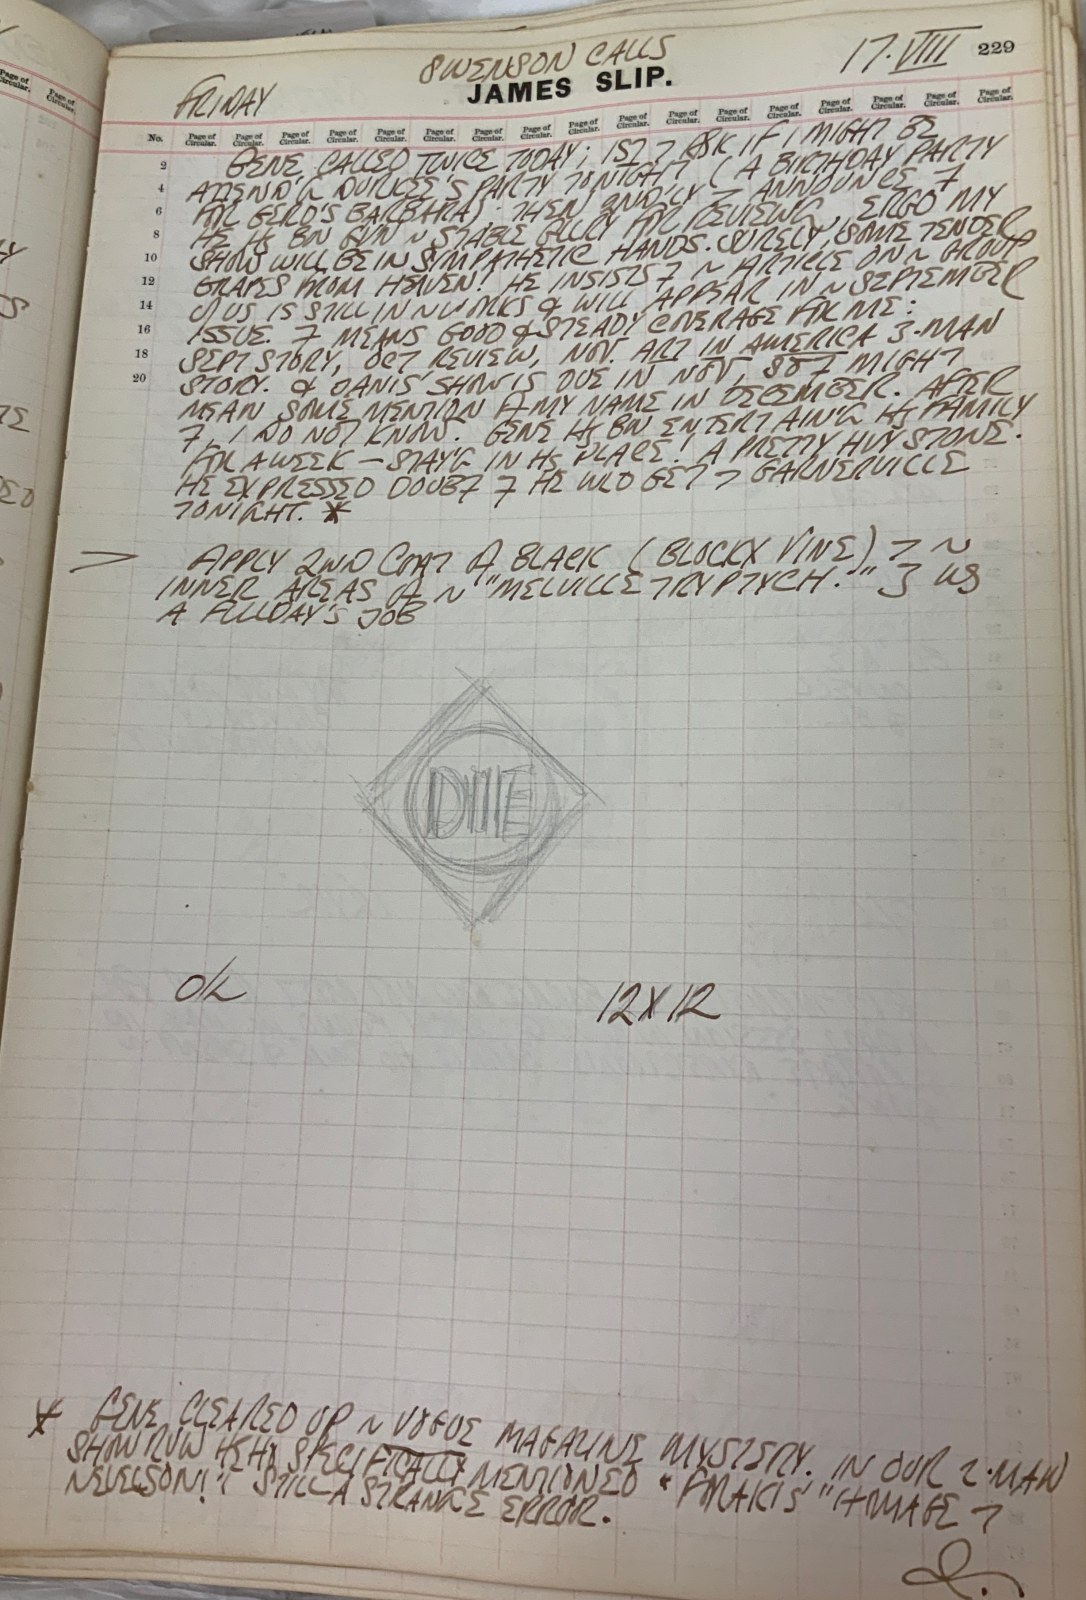 SWENSON CALLS
17·VIII
229
FRIDAY
JAMES SLIP.
Page of Circular.
Page of Circular.
No. Page of Circular. Page of Circular. Page of Circular. Page of Circular. Page of Circular. Page of Circular. Page of Circular. Page of Circular. Page of Circular. Page of Circular. Page of Circular. Page of Circular. Page of Circular. Page of Circular. Page of Circular. Page of Circular. Page of Circular.
2 GENE CALLED TWICE TODAY; 1ST 7 ASK IF I MIGHT BE
4 ATTEND'G DURKEE'S PARTY TONIGHT (A BIRTHDAY PARTY
6 FOR GERD'S BARBARA). THEN 2NDLY 7 ANNOUNCE 7
8 HE HS BN GVN ~ STABLE GLLRY FOR REVIEWING, ERGO MY
10 SHOW WILL BE IN SYMPATHETIC HANDS. SURELY, SOME TENDER
12 GRAPES FROM HEAVEN! HE INSISTS 7 ~ ARTICLE ON ~ GROUP
14 OF US IS STILL IN ~ WORKS & WILL APPEAR IN ~ SEPTEMBER
16 ISSUE. 7 MEANS GOOD & STEADY COVERAGE FOR ME:
18 SEPT STORY, OCT REVIEW, NOV. ART IN AMERICA 3-MAN
20 STORY. & JANIS' SHOW IS DUE IN NOV, SO 7 MIGHT
MEAN SOME MENTION OF MY NAME IN DECEMBER. AFTER
7, I DO NOT KNOW. GENE HS BN ENTERTAIN'G HS FAMILY
FOR A WEEK — STAY'G IN HS PLACE! A PRETTY HVY STONE.
HE EXPRESSED DOUBT 7 HE WLD GET 7 GARNERVILLE
TONIGHT. *
> APPLY 2ND COAT OF BLACK (BLOCKX VINE) 7 ~
INNER AREAS OF ~ "MELVILLE TRYPTYCH." 3 WS
A FULL DAY'S JOB
DIE
OK
12 X 12
* GENE CLEARED UP ~ VOGUE MAGAZINE MYSTERY. IN OUR 2-MAN
SHOW RVW HE HD SPECIFICALLY MENTIONED "FORAKIS'" HOMAGE 7
NEVELSON! STILL A STRANGE ERROR.